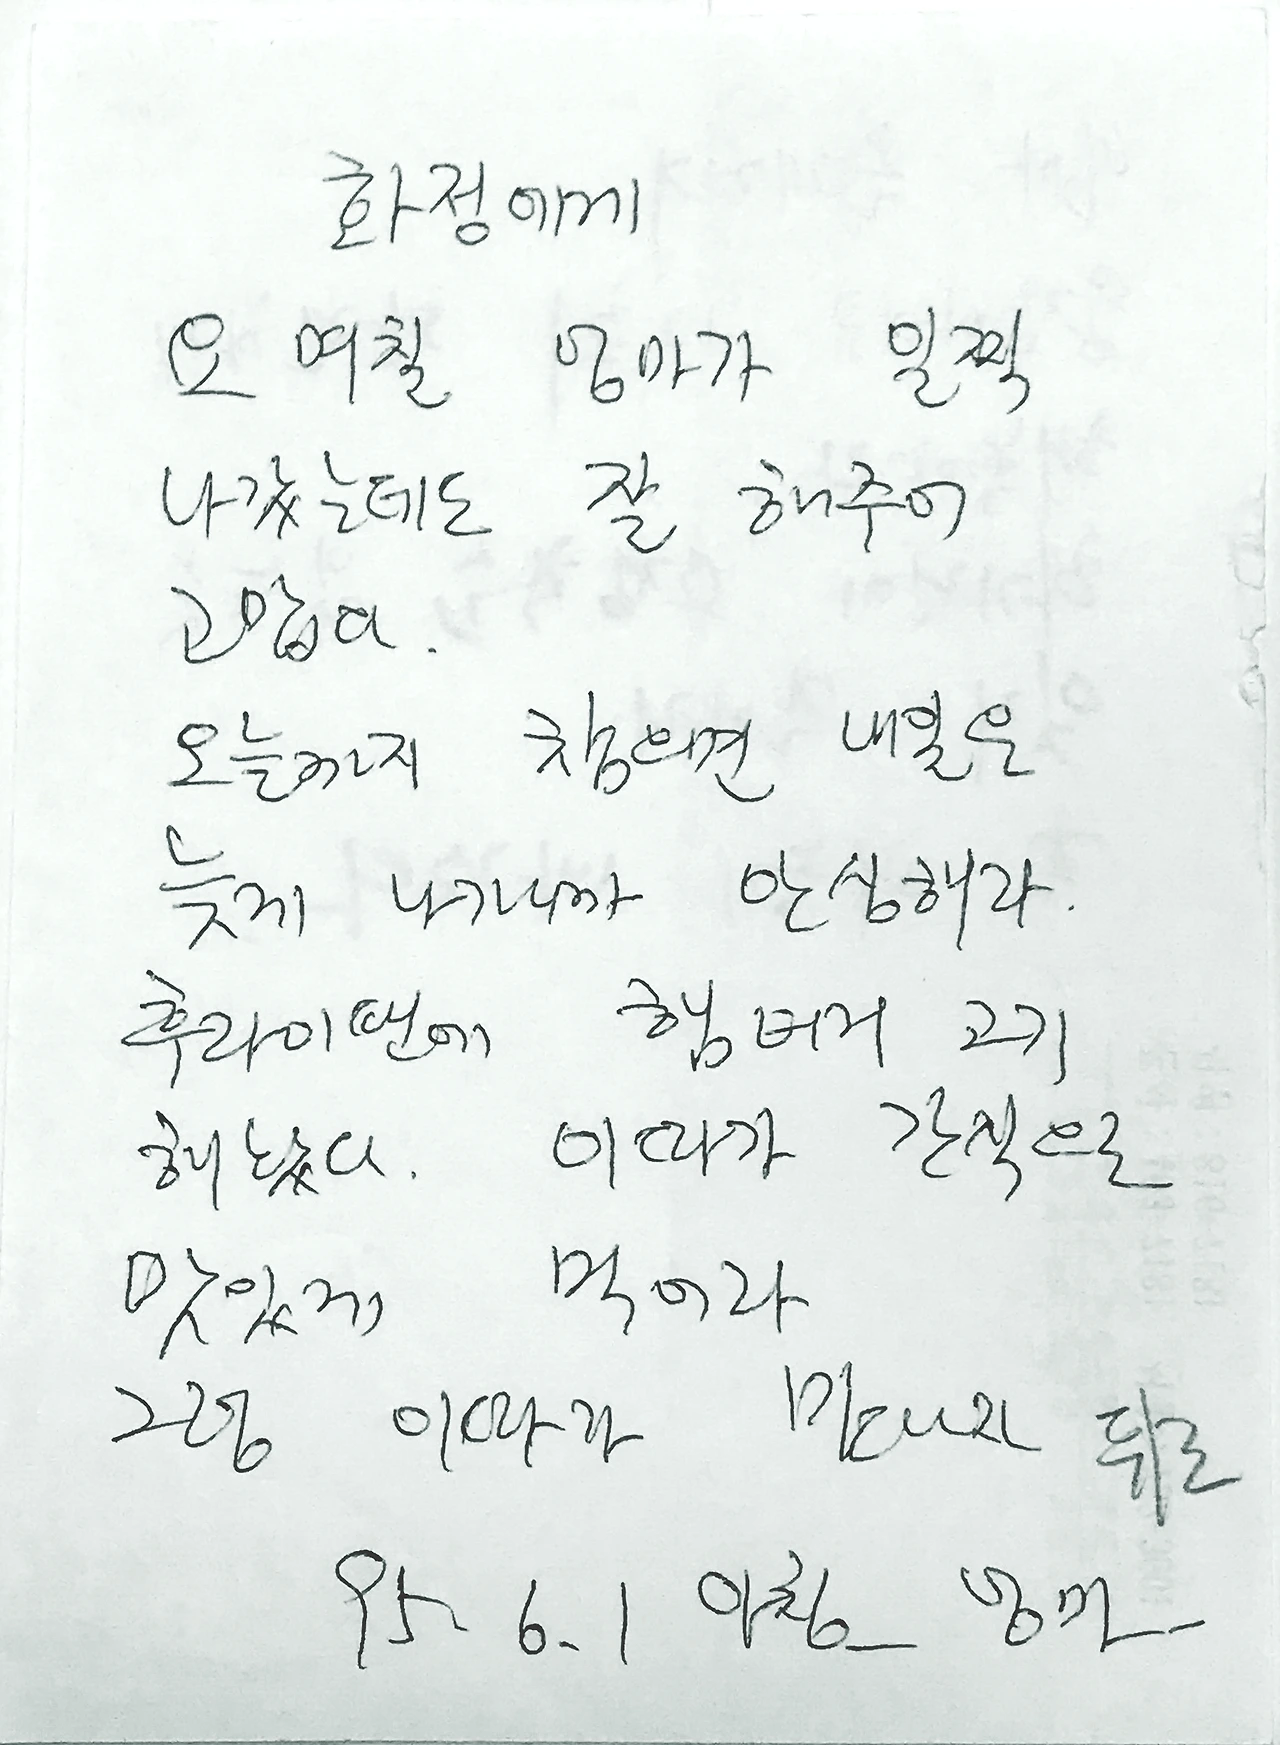 화정에게
요 며칠 엄마가 일찍
나갔는데도 잘 해주어
고맙다.
오늘까지 참으면 내일은
늦게 나가니까 안심해라.
후라이팬에 햄버거 고기
해놨다. 이따가 간식으로
맛있게 먹어라
그럼 이따가 만나자 뒤로
95. 6. 1 아침 엄마